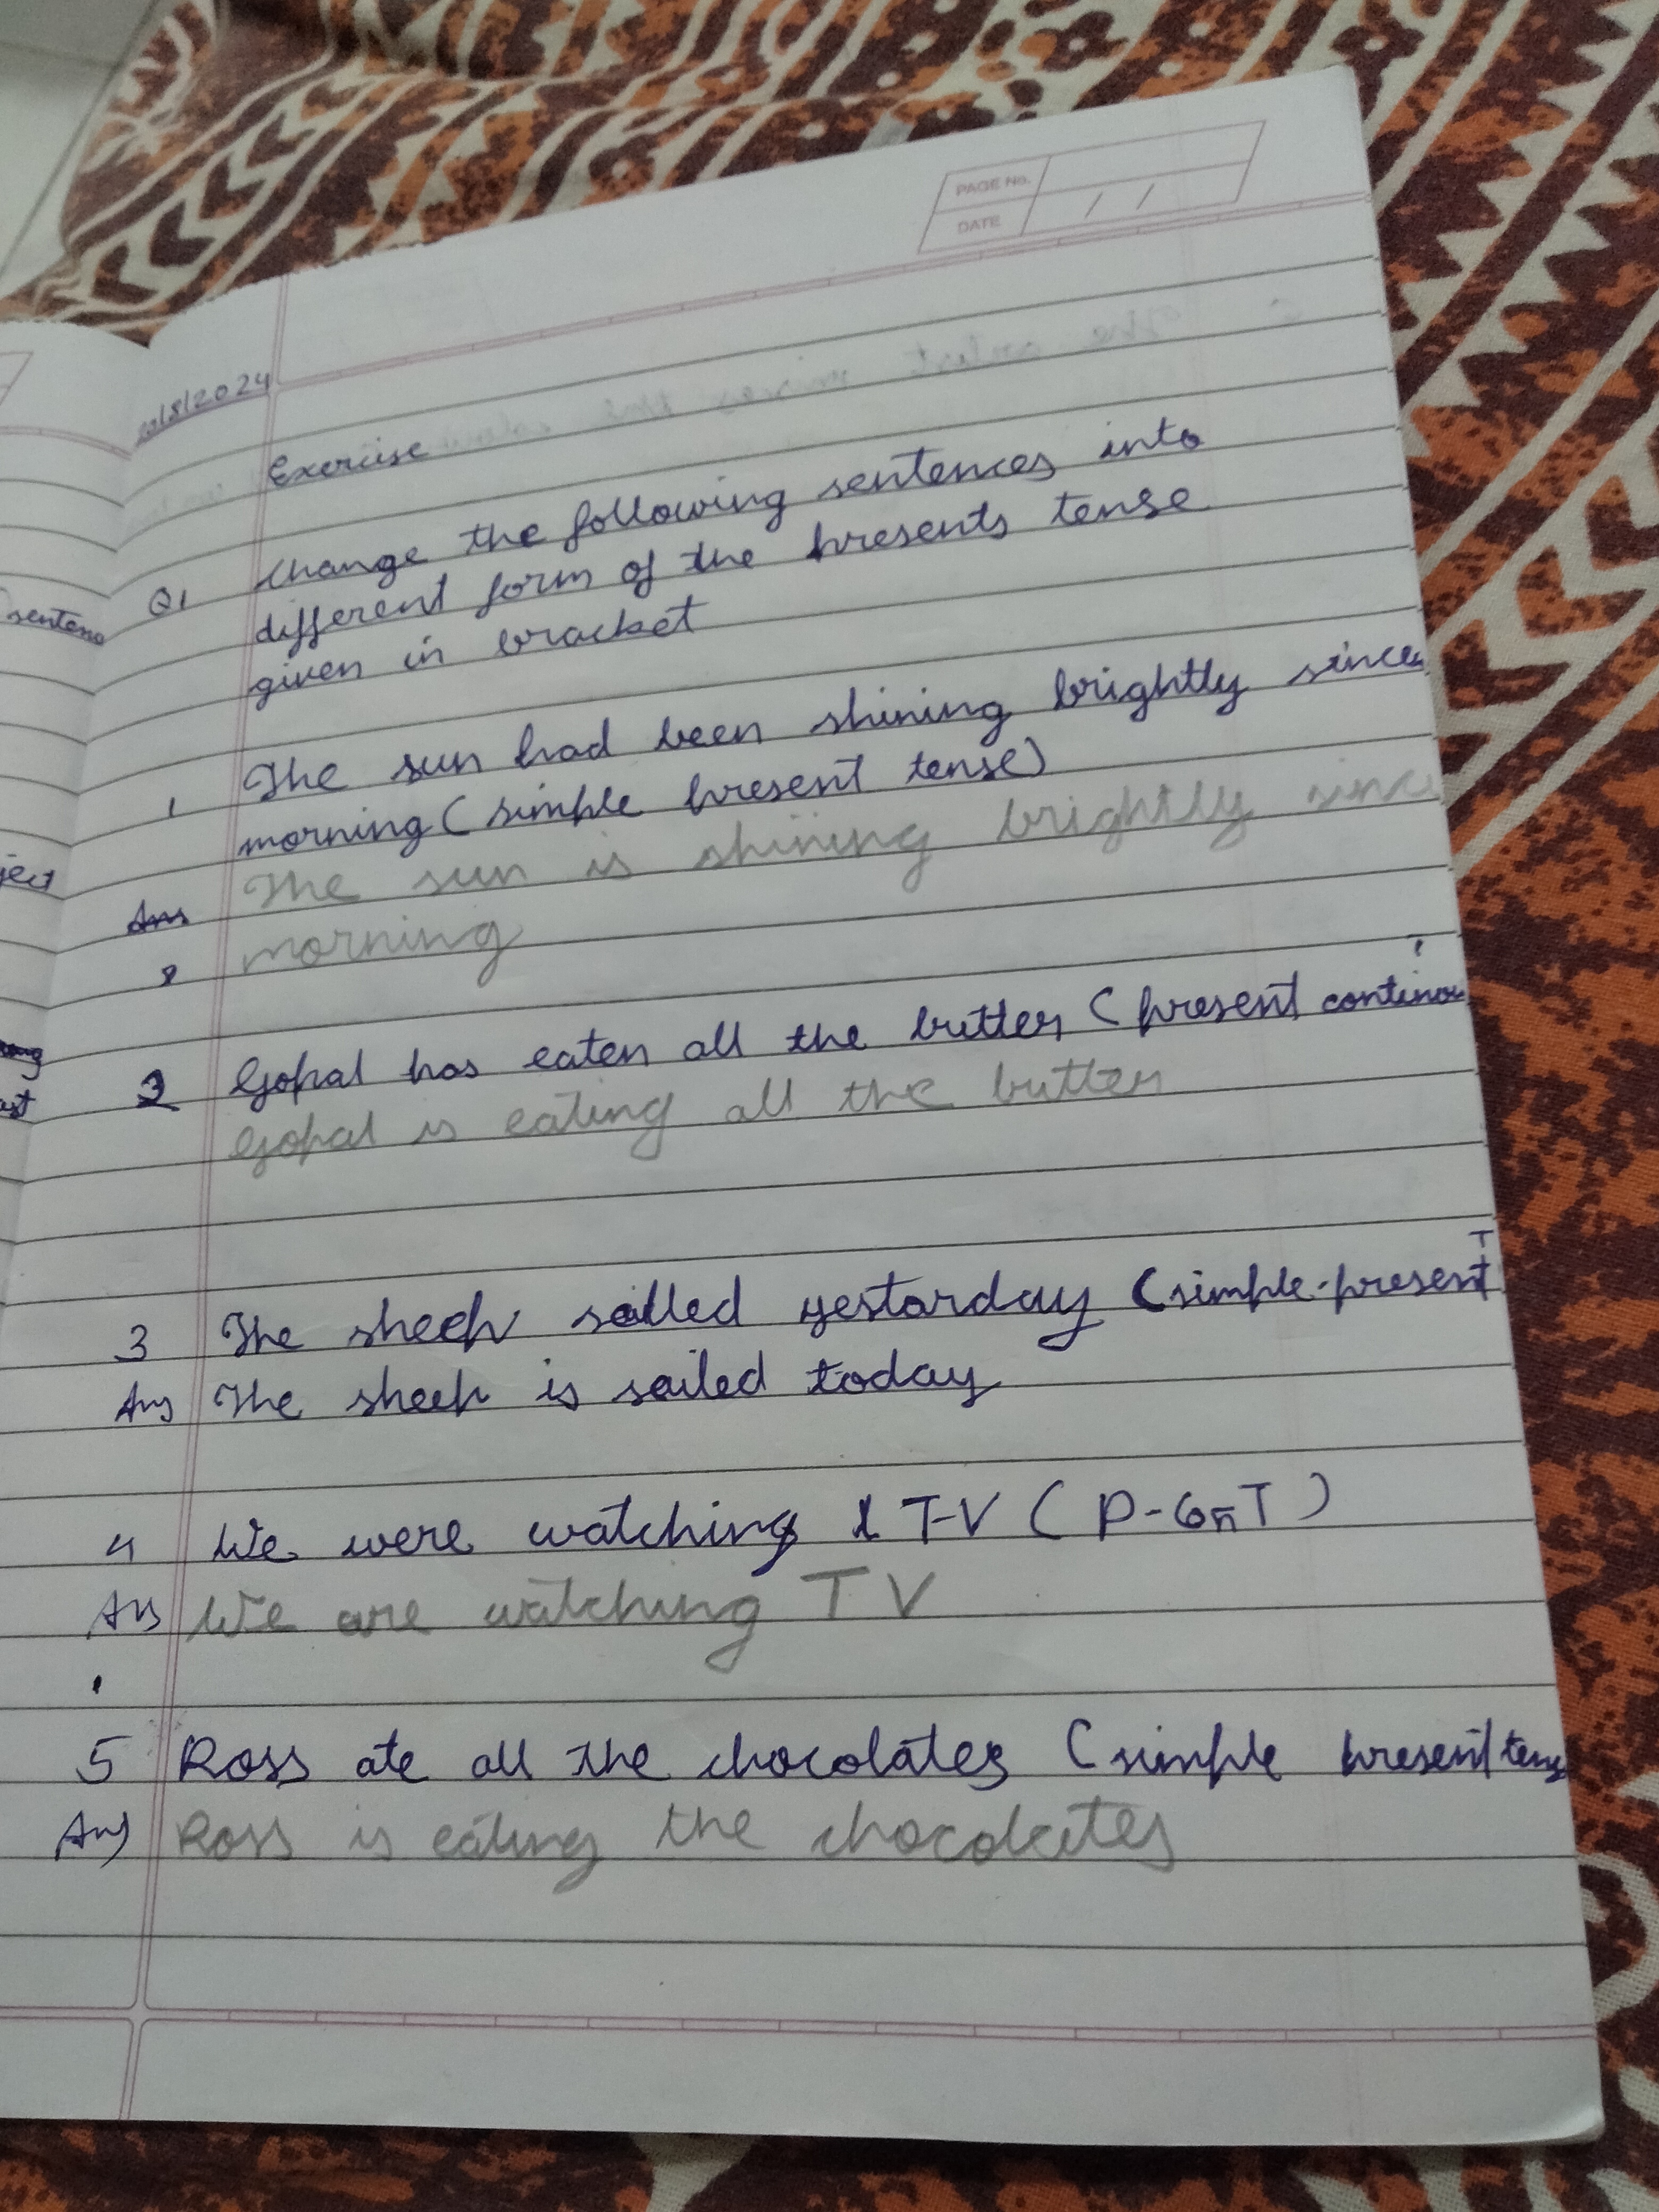 PAGE No.
DATE / /
20/8/2024
Exercise
Q1 Change the following sentences into
different form of the presents tense
given in bracket
1 The sun had been shining brightly since
morning (simple present tense)
Ans The sun is shining brightly since
morning
2 Gopal has eaten all the butter (present continou
Gopal is eating all the butter
T
3 The sheep sailled yestarday (simple-present
Ans The sheep is sailed today
4 We were watching T-V (P-ConT)
Ans We are watching TV
5 Ross ate all the chocolates (simple present tens
Ans Ross is eating the chocolates
sentenc
ject